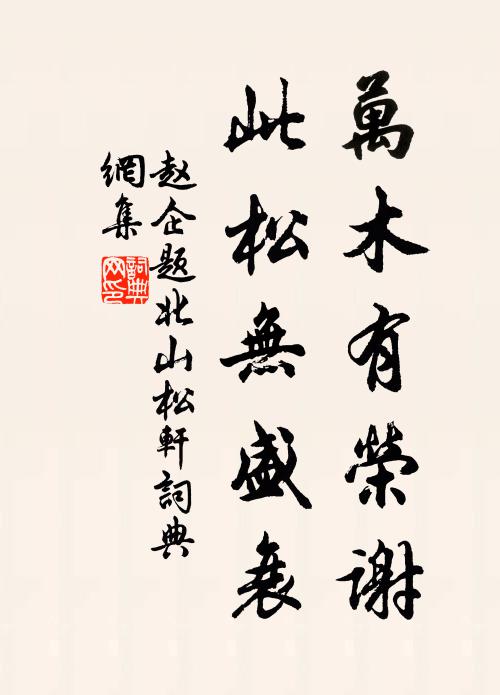 萬木有榮謝
此松無盛衰
赵企题北山松軒詞典
網集
詞典
网印